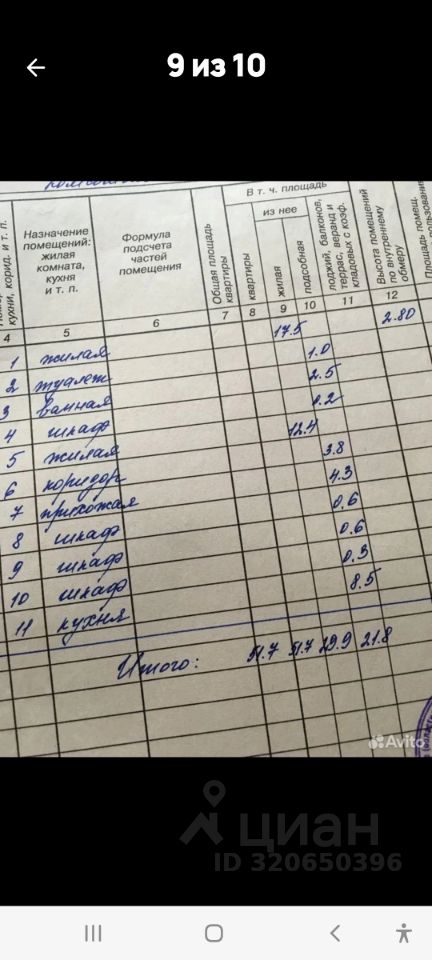 9 из 10
В т. ч. площадь
из нее
кухни, корид. и т. п.
Назначение помещений: жилая комната, кухня и т. п.
Формула подсчета частей помещения
Общая площадь квартиры
квартиры
жилая
подсобная
лоджий, балконов, террас, веранд и кладовых с коэф.
Высота помещений по внутреннему обмеру
Площадь помещ.
4 5 6 7 8 9 10 11 12
1 жилая 17.5 2.80
2 туалет 1.0
3 ванная 2.5
4 шкаф 0.2
5 жилая 12.4
6 коридор 3.8
7 прихожая 4.3
8 шкаф 0.6
9 шкаф 0.6
10 шкаф 0.3
11 кухня 8.5
Итого: 51.7 51.7 29.9 21.8
Avito
циан
ID 320650396